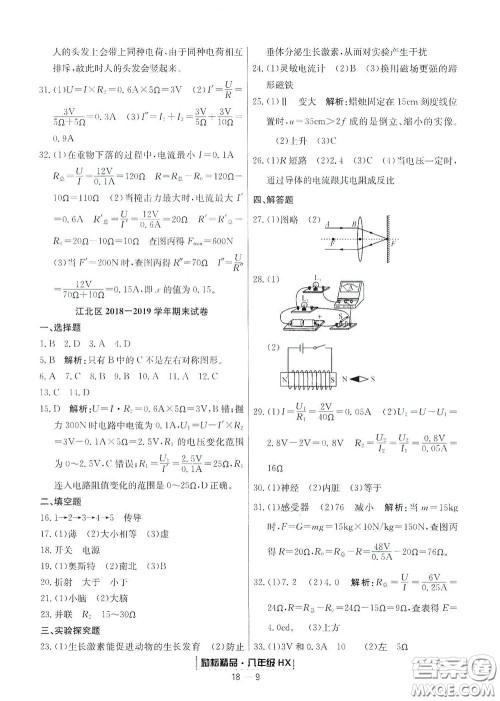 人的头发上会带上同种电荷,由于同种电荷相互
排斥,故此时人的头发会竖起来。
31.(1)U=I×R₂=0.6A×5Ω=3V (2)I'=U/R=
3V/(5Ω+5Ω)=0.3A (3)I"=I₁+I₂=3V/5Ω+3V/10Ω=
0.9A
32.(1)在重物下落的过程中,电流最小 I=0.1A
R总=U/I=12V/0.1A=120Ω R=R总-R₀=120Ω-
10Ω=110Ω (2)当撞击力最大时,电流最大 I'
=0.6A R'总=U/I'=12V/0.6A=20Ω R'=R'总-R₀
=20Ω-10Ω=10Ω 查图丙得 Fmax=600N
(3)当 F'=200N时,查图丙得 R"=70Ω I"=U/R"=
12V/(70Ω+10Ω)=0.15A,即 x 的值为 0.15。
江北区 2018—2019 学年期末试卷
一、选择题
1.B 2.D 3.A 4.B
5.B 解析:只有B中的C不是左右对称图形。
6.A 7.D 8.C 9.A 10.A 11.B 12.B
13.C 14.D
15.D 解析:U=I·R₂=0.6A×5Ω=3V,B错;握
力300N时电路中电流为0.1A,此时U₁=U-U₂
=3V-0.1A×5Ω=2.5V,R₁的电压变化范围
为0~2.5V,C错误;R₁=U₁/I'=2.5V/0.1A=25Ω,R₁
连入电路阻值变化的范围是0~25Ω,D正确。
二、填空题
16.1→2→3→4→5 传导
17.(1)薄 (2)大小相等 (3)虚
18.开关 电源
19.(1)奥斯特 (2)南北 (3)B
20.折射 大于 小于
21.(1)小脑 (2)大脑
22.并联 R₂ 15~30Ω
三、实验探究题
23.(1)生长激素能促进动物的生长发育 (2)防止
垂体分泌生长激素,从而对实验产生干扰
24.(1)灵敏电流计 (2)B (3)换用磁场更强的蹄
形磁铁
25.(1)Ⅱ 变大 解析:蜡烛固定在15cm刻度线位
置时,u=35cm>2f 成的是倒立、缩小的实像。
(2)上升 (3)C
26.(1)R 短路 (2)2.4 (3)C (4)当电压一定时,
通过导体的电流跟其电阻成反比
四、解答题
27.(1)图略 (2)
F
28.(1)
L₁
L₂
A
S
(2)
N
S
N
S
29.(1)I=U₁/R₁=2V/40Ω=0.05A (2)U₂=U-U₁=
2.8V-2V=0.8V R₂=U₂/I₂=U₂/I₁=0.8V/0.05A=
16Ω
30.(1)神经 (2)内脏 (3)等于
31.(1)感受器 (2)76 减小 解析:当 m=15kg
时,F=G=mg=15kg×10N/kg=150N,查图表
得 R=20Ω,R₀=R总-R=48V/0.5A-20Ω=76Ω。
32.(1)7.2 (2)4.0 解析:R总=U/I=6V/0.25A=
24Ω,R=R总-R₀=24Ω-15Ω=9Ω,查表得 E=
4.0cd。 (3)上方
33.(1)3V和0.3A (2)左 (3)10 (4)5Ω
励耘精品·八年级 HX
18 — 9